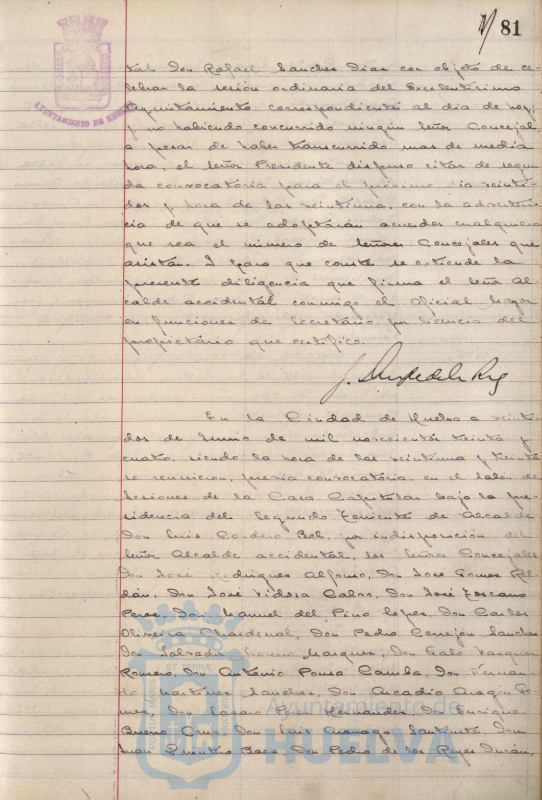 81
tal Don Rafael Sanchez Diaz con objeto de ce-
lebrar la sesión ordinaria del Excelentísimo
Ayuntamiento correspondiente al dia de hoy,
y no habiendo concurrido ningún señor Concejal
a pesar de haber transcurrido mas de media
hora, el señor Presidente dispuso citar de segun-
da convocatoria para el próximo dia veinti-
dos y hora de las veintiuna, con la adverten-
cia de que se adoptarán acuerdos cualquiera
que sea el número de señores Concejales que
asistan. Y para que conste se extiende la
presente diligencia que firma el señor Al-
calde accidental conmigo el Oficial Mayor
en funciones de Secretario por licencia del
propietario que certifico.
En la Ciudad de Huelva a veinti-
dos de Junio de mil novecientos treinta y
cuatro, siendo la hora de las veintiuna y treinta
se reunieron, previa convocatoria en el Salón de
Sesiones de la Casa Capitular bajo la pre-
sidencia del Segundo Teniente de Alcalde
Don Luis Cordero Bel, por indisposición del
señor Alcalde accidental, los señores Concejales
Don José Rodriguez Alfonso, Don José Gomez Rol-
dán, Don José Vidosa Calvo, Don José Toscano
Perez, Don Manuel del Pino Lopez, Don Carlos
Oliveira Chardenal, Don Pedro Cerrejón Sanchez
Don Salvador Marquez, Don Galo Vazquez
Romero, Don Antonio Ponsa Camba, Don Fernan-
do Martinez Sanchez, Don Arcadio Aragón Go-
mez, Don Perez Hernandez, Don Enrique
Bueno Cruz, Don Luis Don
Juan Quintero Baez, Don Pedro de los Reyes Durán,
AYUNTAMIENTO DE HUELVA
Ayuntamiento de
HUELVA